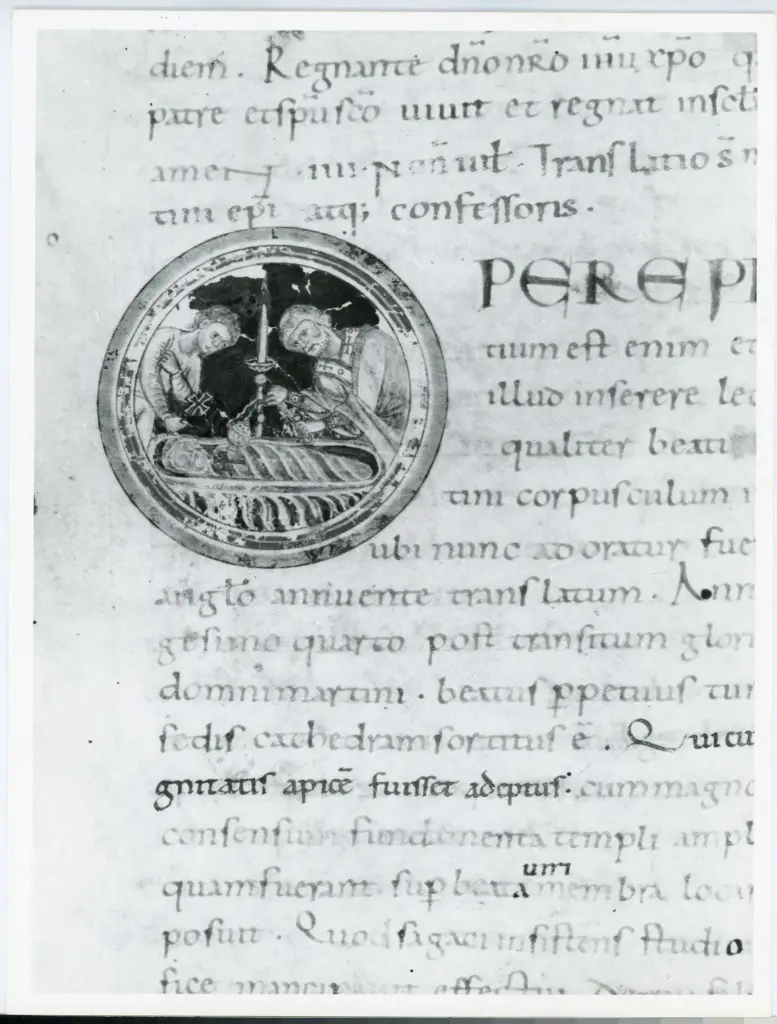 diem. Regnante dn̄o nr̄o ihu xp̄o q
patre et sp̄u sc̄o uiuit et regnat in sc̄l
amen. iiii. Non̄ iul. Translatio S m
tini ep̄i atq; confessoris.
OPERE P
tium est enim et
illud inserere lec
qualiter beati
tini corpusculum
ubi nunc adoratur fue
anglo annuente translatum. Ann
gesimo quarto post transitum glori
domni martini. beatus ꝑpetuus tur
sedis cathedram sortitus ē. Qui cu
gnitatis apicē fuisset adeptus. cum magno
consensum fundamenta templi ampl
um
quam fuerant suꝑ beata membra loca
posuit. Quod sagaci insistens studio
fice mancipauit effectui